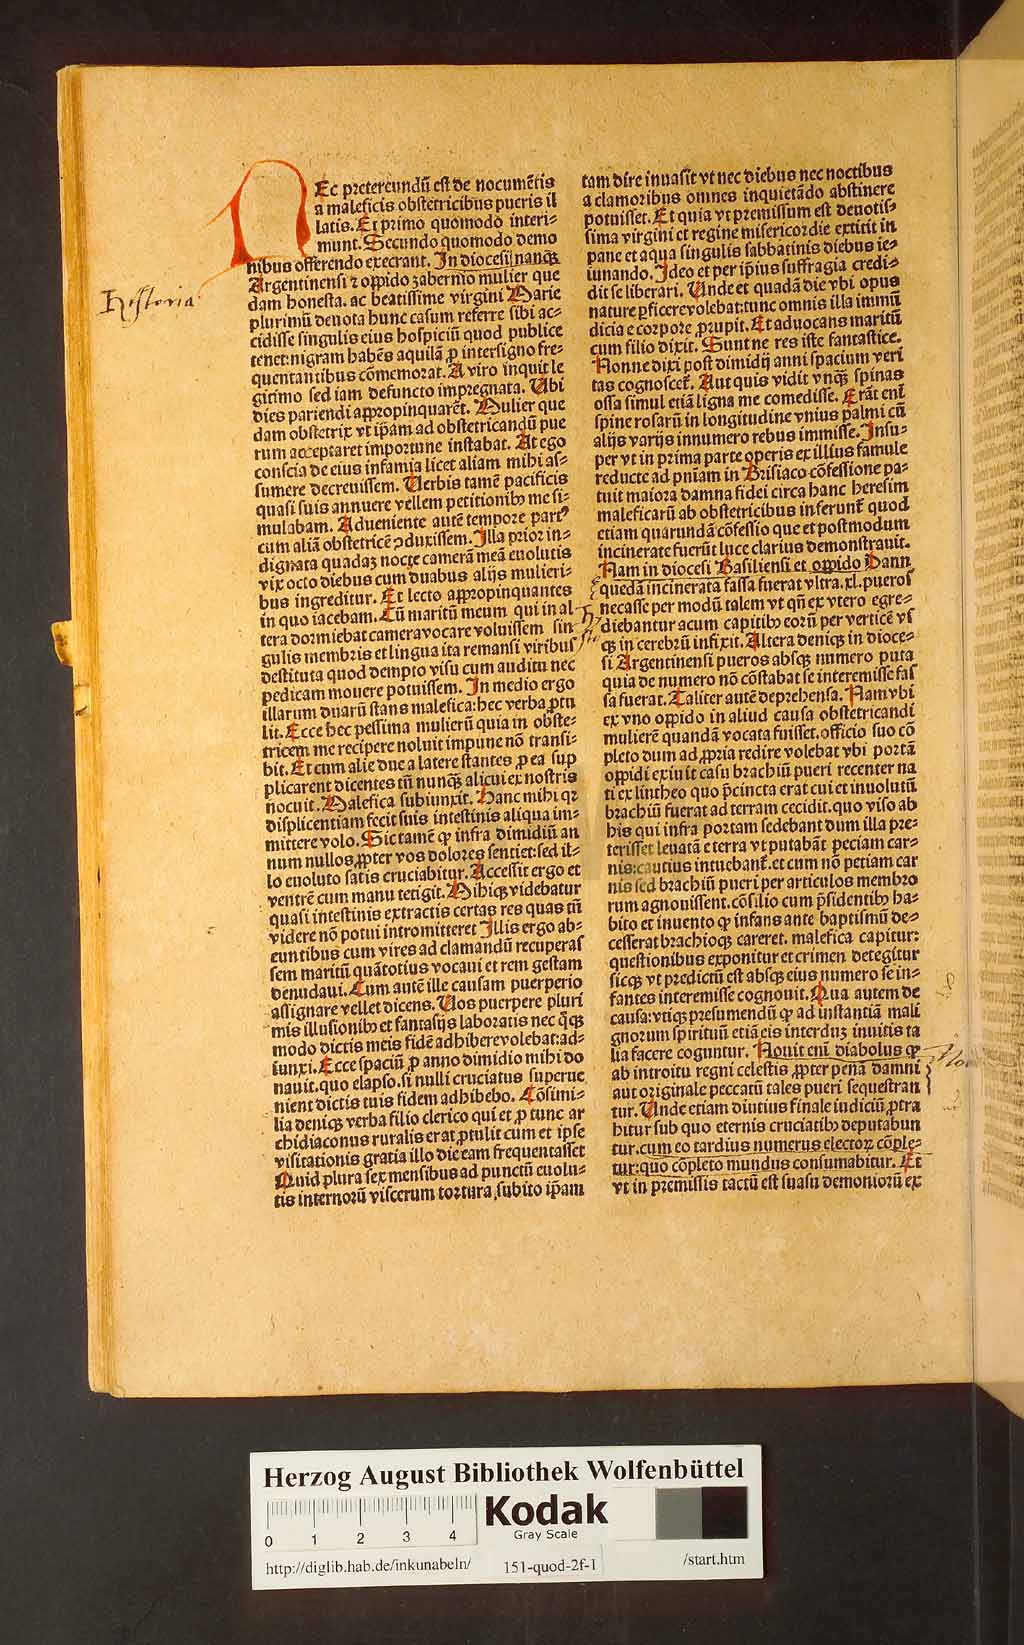 Historia
NEc pretereundū est de nocumētis
a maleficis obstetricibus pueris il
latis. Et primo quomodo interi⸗
munt. Secundo quomodo demo
nibus offerendo execrant. In diocesi nanqꝫ
Argentinensi ⁊ oppido zabernio mulier que
dam honesta. ac beatissime virgini Marie
plurimū deuota hunc casum referre sibi ac⸗
cidisse singulis eius hospiciū quod publice
tenet: nigram habēs aquilā ꝓ intersigno fre⸗
quentantibus cōmemorat. A viro inquit le
gitimo sed iam defuncto impregnata. Ubi
dies pariendi appropinquarēt. Mulier que
dam obstetrix vt ip̄am ad obstetricandū pue
rum acceptaret importune instabat. At ego
conscia de eius infamia licet aliam mihi as⸗
sumere decreuissem. Uerbis tamē pacificis
quasi suis annuere vellem petitionibꝰ me si⸗
mulabam. Adueniente autē tempore partꝰ
cum aliā obstetricē ꝯduxissem. Illa prior in⸗
dignata quadaꝫ nocte camerā meā euolutis
vix octo diebus cum duabus alijs mulieri⸗
bus ingreditur. Et lecto appropinquantes
in quo iacebam. Cū maritū meum. qui in al
tera dormiebat camera vocare voluissem sin
gulis membris et lingua ita remansi viribus
destituta quod dempto visu cum auditu nec
pedicam mouere potuissem. In medio ergo
illarum duarū stans malefica: hec verba ꝓtu
lit. Ecce hec pessima mulierū quia in obste⸗
tricem me recipere noluit impune nō transi⸗
bit. Et cum alie due a latere stantes ꝓ ea sup
plicarent dicentes tn̄ nunqꝫ alicui ex nostris
nocuit. Malefica subiunxit. Hanc mihi qꝛ
displicentiam fecit suis intestinis aliqua im⸗
mittere volo. Sic tamē ꝙ infra dimidiū an
num nullos ꝓpter vos dolores sentiet: sed il⸗
lo euoluto satis cruciabitur. Accessit ergo et
ventrē cum manu tetigit. Mihiqꝫ videbatur
quasi intestinis extractis certas res quas tn̄
videre nō potui intromitteret Illis ergo ab⸗
euntibus cum vires ad clamandū recuperas
sem maritū quātotius vocaui et rem gestam
denudaui. Cum autē ille causam puerperio
assignare vellet dicens. Uos puerpere pluri
mis illusionibꝰ et fantasijs laboratis nec q̄qꝫ
modo dictis meis fidē adhibere volebat: ad⸗
iunxi. Ecce spaciū ꝓ anno dimidio mihi do
nauit. quo elapso. si nulli cruciatus superue
nient dictis tuis fidem adhibebo. Cōsimi⸗
lia deniqꝫ verba filio clerico qui et ꝓ tunc ar
chidiaconus ruralis erat ꝓtulit cum et ipse
visitationis gratia illo die eam frequentasset
Quid plura sex mensibus ad punctū euolu⸗
tis internorū viscerum tortura subito ip̄am
tam dire inuasit vt nec diebus nec noctibus
a clamoribus omnes inquietādo abstinere
potuisset. Et quia vt premissum est deuotis⸗
sima virgini et regine misericordie extitit in
pane et aqua singulis sabbatinis diebus ie⸗
iunando. Ideo et per ip̄ius suffragia credi⸗
dit se liberari. Unde et quadā die vbi opus
nature ꝑficere volebat: tunc omnis illa immū
dicia e corpore ꝓrupit. Et aduocans maritū
cum filio dixit. Sunt ne res iste fantastice.
Nonne dixi post dimidij anni spacium veri
tas cognosceret̄. Aut quis vidit vnqꝫ spinas
ossa simul etiā ligna me comedisse. Erāt eni̅
spine rosarū in longitudine vnius palmi cū
alijs varijs innumero rebus immisse. Insu⸗
per vt in prima parte operis ex illius famule
reducte ad pniam in Brisiaco cōfessione pa⸗
tuit maiora damna fidei circa hanc heresim
maleficarū ab obstetricibus inferunt̄ quod
etiam quarundā cōfessio que et postmodum
incinerate fuerūt luce clarius demonstrauit.
Nam in diocesi Basiliensi et oppido Dann
quedā incinerata fassa fuerat vltra .xl. pueros
necasse per modū talem vt qn̄ ex vtero egre⸗
diebantur acum capitibꝰ eorū per verticē vs
qꝫ in cerebrū infixit. Altera deniqꝫ in dioce⸗
si Argentinensi pueros absqꝫ numero puta
quia de numero nō cōstabat se interemisse fas
sa fuerat. Taliter autē deprehensa. Nam vbi
ex vno oppido in aliud causa obstetricandi
mulierē quandā vocata fuisset. officio suo cō
pleto dum ad ꝓpria redire volebat vbi portā
oppidi exiuit casu brachiū pueri recenter na
ti ex lintheo quo p̄cincta erat cui et inuolutū
brachiū fuerat ad terram cecidit. quo viso ab
his qui infra portam sedebant dum illa pre⸗
terisset leuatā e terra vt putabāt peciam car⸗
nis: cautius intuebant̄. et cum nō petiam car
nis sed brachiū pueri per articulos membro
rum agnouissent. cōsilio cum p̄sidentibꝰ ha⸗
bito et inuento ꝙ infans ante baptismū de⸗
cesserat brachioqꝫ careret. malefica capitur:
questionibus exponitur et crimen detegitur
sicqꝫ vt predictū est absqꝫ eius numero se in⸗
fantes interemisse cognouit. Qua autem de
causa: vtiqꝫ presumendū ꝙ ad instantiā mali
gnorum spirituū etiā eis interduꝫ inuitis ta
lia facere coguntur. Nouit eni̅ diabolus ꝙ
ab introitu regni celestis ꝓpter penā damni
aut originale peccatū tales pueri sequestran
tur. Unde etiam diutius finale iudiciū ꝓtra
hitur sub quo eternis cruciatibꝰ deputabun
tur. cum eo tardius numerus electoꝝ cōple⸗
tur: quo cōpleto mundus consumabitur. Et
vt in premissis tactū est suasu demoniorū ex
Herzog August Bibliothek Wolfenbüttel
0 1 2 3 4
Kodak
Gray Scale
http://diglib.hab.de/inkunabeln/
151-quod-2f-1
/start.htm